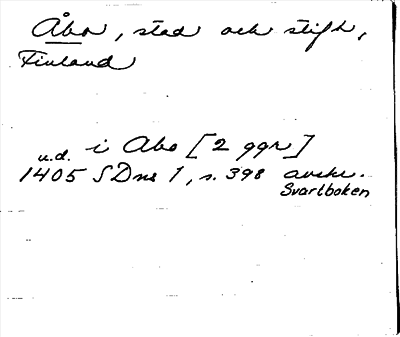 Åbo, stad och stift,
Finland
i Abo [2 ggr]
u.d.
1405 SDns 1, s. 398 avskr.
Svartboken